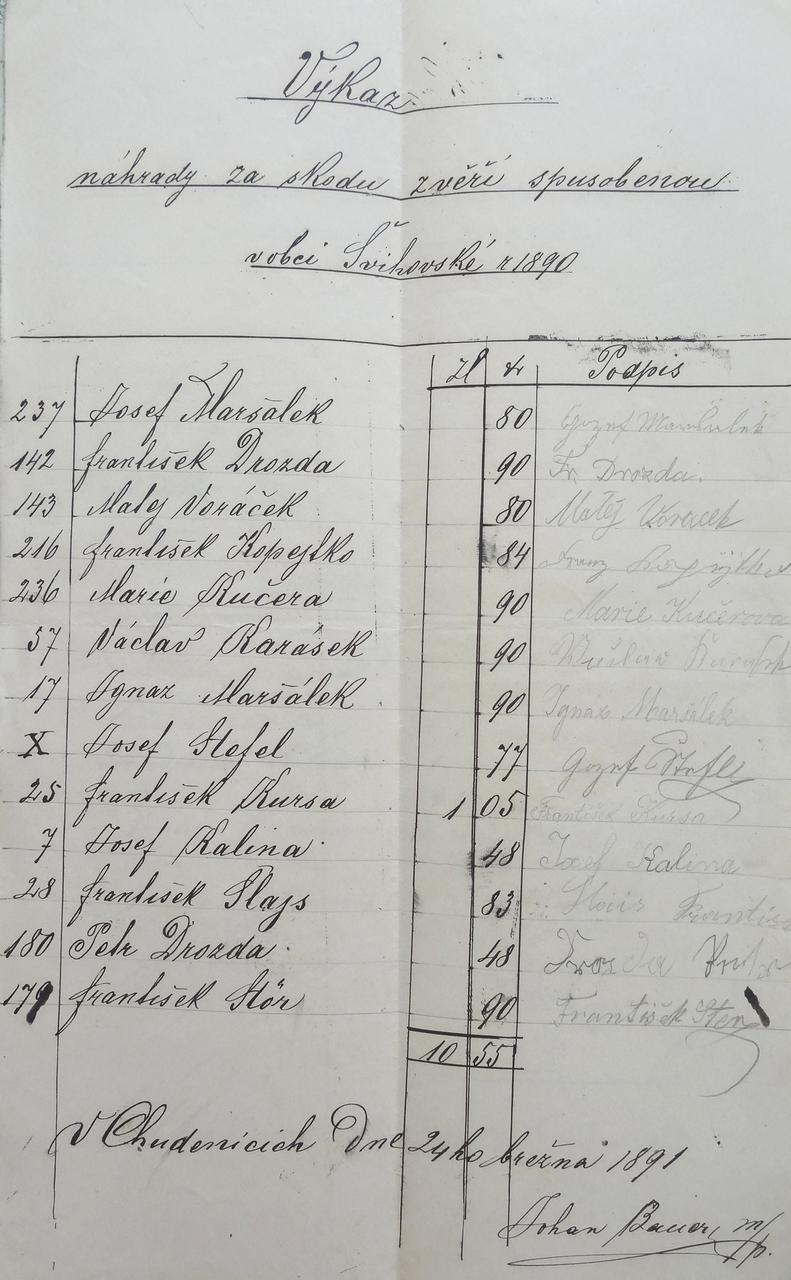 Výkaz
náhrady za skodu zvěří spusobenou
v obci Švihovské r 1890
zl kr Podpis
237 Josef Maršálek 80 Gozef Maršalek
142 František Drozda 90 Fr. Drozda.
143 Matej Voráček 80 Matěj Voracek
216 František Kopejtko 84 Franz
236 Marie Kučera 90 Marie Kučerova
57 Václav Karásek 90
17 Ignaz Maršálek 90 Ignáz Maršálek
X Josef Stefel 77 Gozef Štefl
25 František Kursa 1 05 František Kursa
7 Josef Kalina 48 Josef Kalina
28 František Slajs 83
180 Petr Drozda 48 Drozda
179 František Stör 90 František Ster
10 55
v Chudenicich Dne 24ho března 1891
Johan Bauer, m/p.